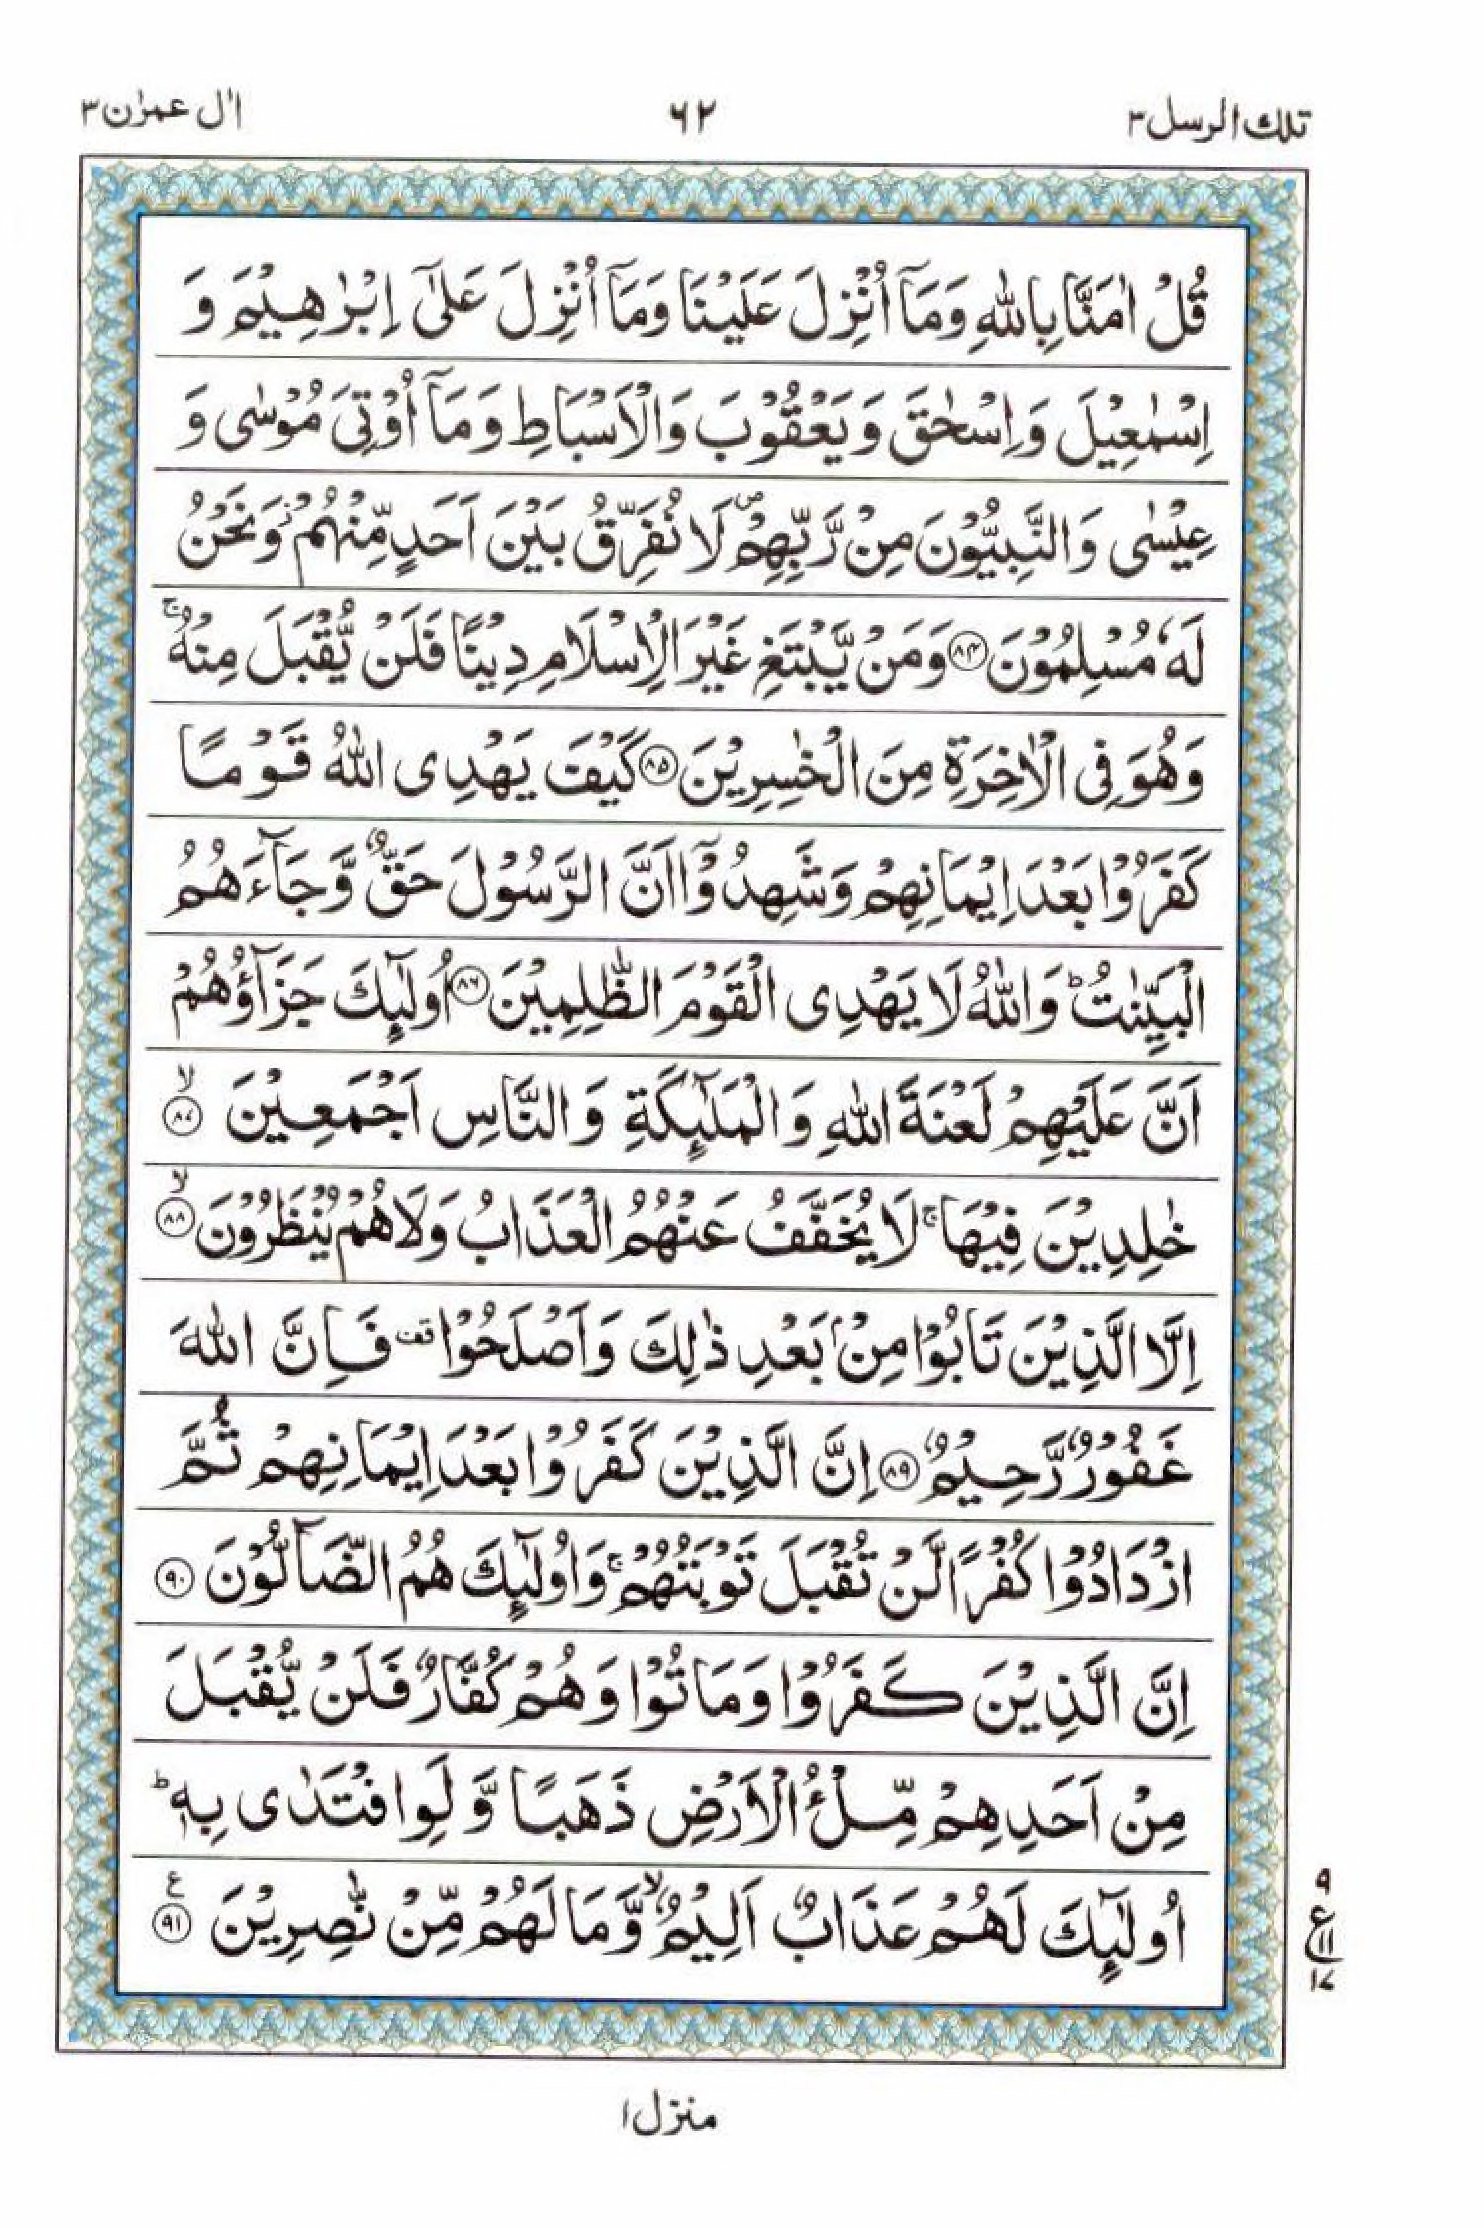 تلك الرسل ٣
٦٢
اٰل عمرٰن ٣
قُلْ اٰمَنَّا بِاللّٰهِ وَمَاۤ اُنْزِلَ عَلَيْنَا وَمَاۤ اُنْزِلَ عَلٰۤى اِبْرٰهِيْمَ وَ
اِسْمٰعِيْلَ وَاِسْحٰقَ وَيَعْقُوْبَ وَالْاَسْبَاطِ وَمَاۤ اُوْتِىَ مُوْسٰى وَ
عِيْسٰى وَالنَّبِيُّوْنَ مِنْ رَّبِّهِمْ ۪ لَا نُفَرِّقُ بَيْنَ اَحَدٍ مِّنْهُمْ ؗ وَنَحْنُ
لَهٗ مُسْلِمُوْنَ ﴿۸۴﴾ وَمَنْ يَّبْتَغِ غَيْرَ الْاِسْلَامِ دِيْنًا فَلَنْ يُّقْبَلَ مِنْهُ ۚ
وَهُوَ فِى الْاٰخِرَةِ مِنَ الْخٰسِرِيْنَ ﴿۸۵﴾ كَيْفَ يَهْدِى اللّٰهُ قَوْمًا
كَفَرُوْا بَعْدَ اِيْمَانِهِمْ وَشَهِدُوْۤا اَنَّ الرَّسُوْلَ حَقٌّ وَّجَآءَهُمُ
الْبَيِّنٰتُ ؕ وَاللّٰهُ لَا يَهْدِى الْقَوْمَ الظّٰلِمِيْنَ ﴿۸۶﴾ اُولٰٓئِكَ جَزَآؤُهُمْ
اَنَّ عَلَيْهِمْ لَعْنَةَ اللّٰهِ وَالْمَلٰٓئِكَةِ وَالنَّاسِ اَجْمَعِيْنَ ۙ ﴿۸۷﴾
خٰلِدِيْنَ فِيْهَا ۚ لَا يُخَفَّفُ عَنْهُمُ الْعَذَابُ وَلَا هُمْ يُنْظَرُوْنَ ۙ ﴿۸۸﴾
اِلَّا الَّذِيْنَ تَابُوْا مِنْۢ بَعْدِ ذٰلِكَ وَاَصْلَحُوْا قف فَاِنَّ اللّٰهَ
غَفُوْرٌ رَّحِيْمٌ ﴿۸۹﴾ اِنَّ الَّذِيْنَ كَفَرُوْا بَعْدَ اِيْمَانِهِمْ ثُمَّ
ازْدَادُوْا كُفْرًا لَّنْ تُقْبَلَ تَوْبَتُهُمْ ۚ وَاُولٰٓئِكَ هُمُ الضَّآلُّوْنَ ﴿۹۰﴾
اِنَّ الَّذِيْنَ كَفَرُوْا وَمَاتُوْا وَهُمْ كُفَّارٌ فَلَنْ يُّقْبَلَ
مِنْ اَحَدِهِمْ مِّلْءُ الْاَرْضِ ذَهَبًا وَّلَوِ افْتَدٰى بِهٖ ؕ
اُولٰٓئِكَ لَهُمْ عَذَابٌ اَلِيْمٌ ۙ وَّمَا لَهُمْ مِّنْ نّٰصِرِيْنَ ع ﴿۹۱﴾
۹
ع
۱۱
۱۷
منزل ۱